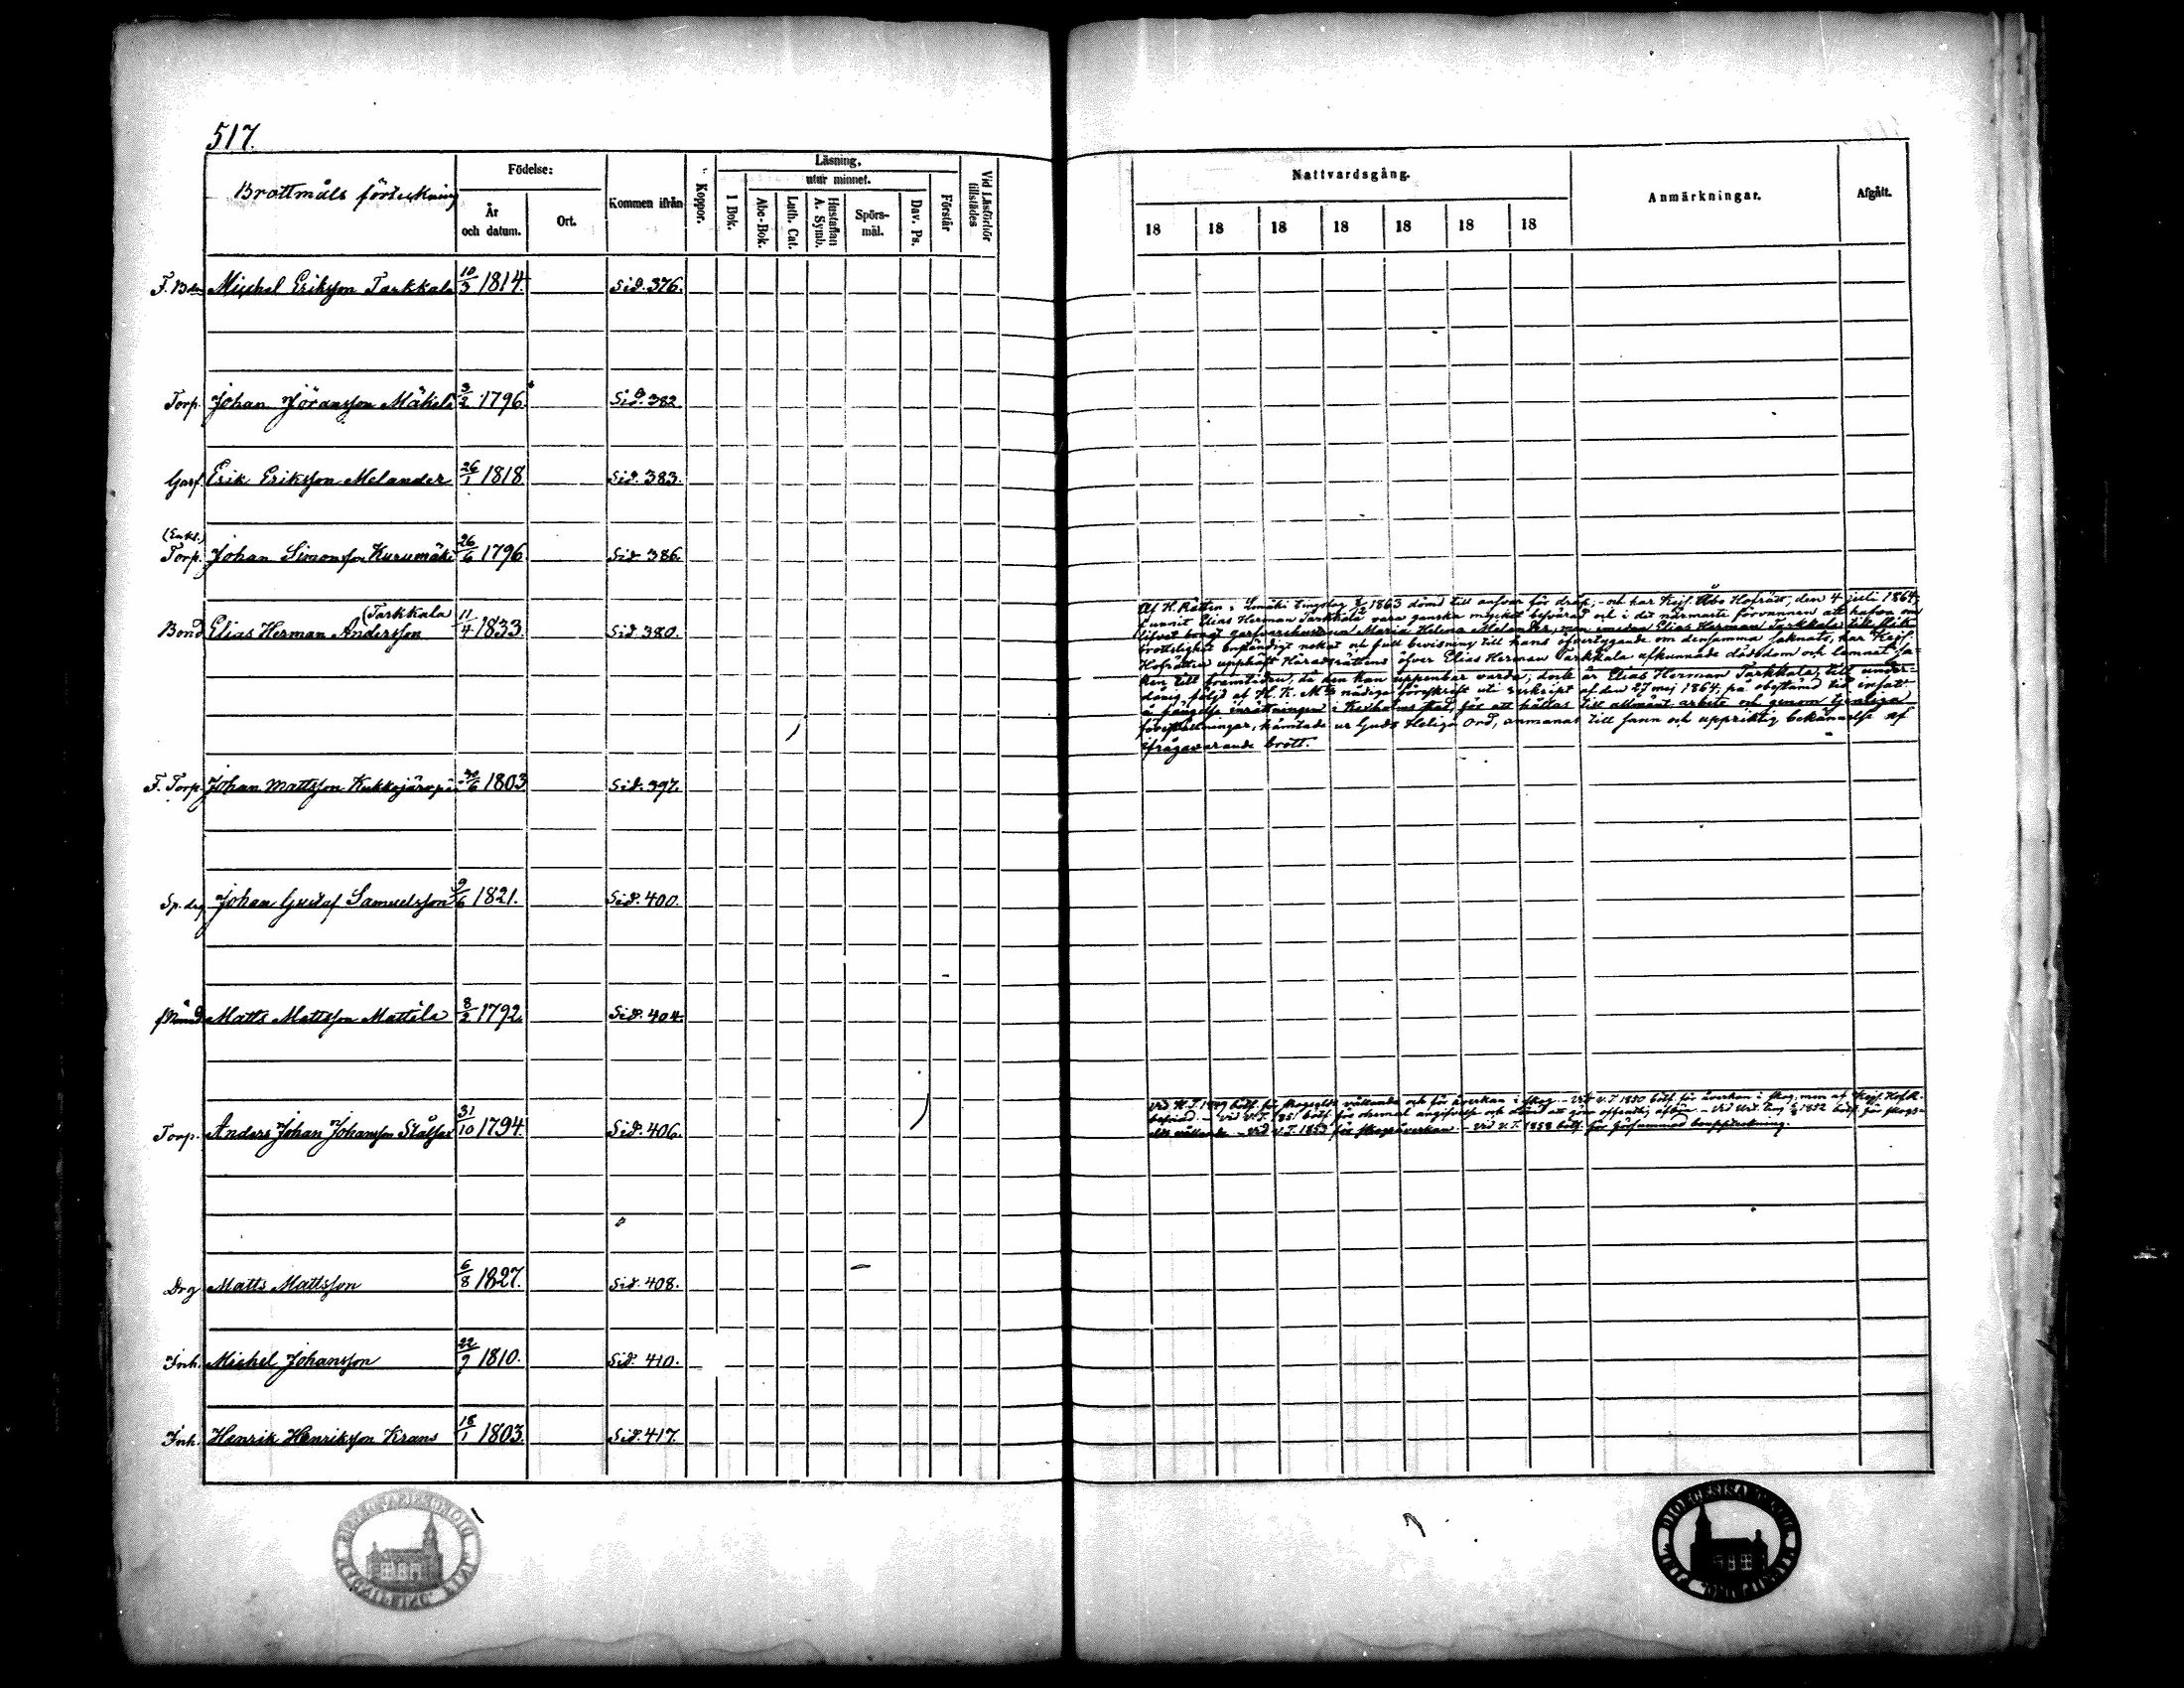 517.
Brottmåls förteckning
Födelse:
År
och datum.
Ort.
Kommen ifrån
Koppor.
Läsning.
utur minnet.
I Bok.
Abc-Bok.
Luth. Cat.
Hustaflan
A. Symb.
Spörs-
mål.
Dav. Ps.
Förstår
Vid Läsförhör
tillstädes
Nattvardsgång.
18 18 18 18 18 18 18
Anmärkningar.
Afgått.
F. Bon Michel Eriksson Tarkkala 10/3 1814. Sid. 376.
Torp. Johan Jöransson Mäkelä 3/2 1796. Sid. 382.
Garf. Erik Eriksson Melander 26/1 1818 Sid. 383.
(Enkl.)
Torp. Johan Simonsson Kurumäki 26/6 1796 Sid. 386.
(Tarkkala
Bond Elias Herman Andersson 11/4 1833. Sid. 380.
Af H. Rätten i tingslag 1863 dömd till ansvar för dråp; och har Kejs. Åbo Hofrätt, den 4 juli 1864,
funnit Elias Herman Tarkkala vara ganska mycket besvärad och i det närmaste förvunnen att hafva om
lifvet bragt garfvarehustrun Maria Helena Melander, men emedan Elias Herman Tarkkala till slik
brottslighet enständigt nekat och full bevisning till hans öfvertygande om densamma saknats, har Kejs.
Hofrätten upphäft Häradsrättens öfver Elias Herman Tarkkala afkunnade dödsdom och lemnat sa-
ken till framtiden, då den kan uppenbar varda; dock är Elias Herman Tarkkala, till under-
dånig följd af H. K. M:ts nådiga föreskrift uti reskript af den 27 maj 1864, på obestämd tid insatt
å fängelse inrättningen i Kexholms stad, för att hållas till allmänt arbete och genom tjenliga
föreställningar, hämtade ur Guds Heliga Ord, anmanas till sann och uppriktig bekännelse af
ifrågavarande brott.
F. Torp. Johan Mattsson Kukkojärvi 30/6 1803 Sid. 397.
Sp. drg Johan Gustaf Samuelsson 9/6 1821. Sid. 400.
Matts Mattsson Mattila 8/2 1792. Sid. 404.
Torp. Anders Johan Johansson Stålfas 31/10 1794. Sid. 406.
Vid H. T. 1849 bötf. för skogseldts vållande och för åverkan i skog – Vid v. T. 1850 bötf. för åverkan i skog, men af Kejs. Hofr.
befriad. – Vid v. T. 1851 bötf. för angifvelse och dömd att göra offentlig afbön – Vid Urt. ting 1852 bötf. för skogs-
elds vållande – Vid v. T. 1853 för skogsåverkan. – Vid v. T. 1858 bötf. för försummad bouppteckning.
Drg Matts Mattsson 6/8 1827. Sid. 408.
Inh. Michel Johansson 22/9 1810. Sid. 410.
Inh. Henrik Henriksson Krans 18/1 1803. Sid. 417.